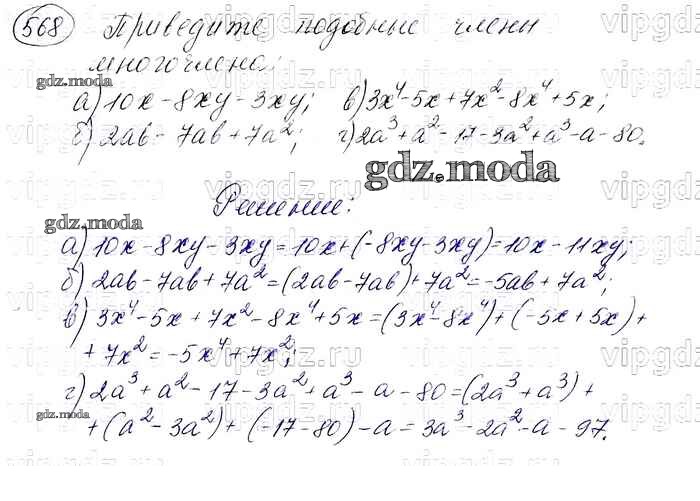 568 Приведите подобные члены
многочлена:
gdz.moda
а) 10x - 8xy - 3xy; в) 3x⁴ - 5x + 7x² - 8x⁴ + 5x;
б) 2ab - 7ab + 7a²; г) 2a³ + a² - 17 - 3a² + a³ - a - 80.
gdz.moda
Решение:
gdz.moda
а) 10x - 8xy - 3xy = 10x + (-8xy - 3xy) = 10x - 11xy;
б) 2ab - 7ab + 7a² = (2ab - 7ab) + 7a² = -5ab + 7a²;
в) 3x⁴ - 5x + 7x² - 8x⁴ + 5x = (3x⁴ - 8x⁴) + (-5x + 5x) +
+ 7x² = -5x⁴ + 7x²;
gdz.moda
г) 2a³ + a² - 17 - 3a² + a³ - a - 80 = (2a³ + a³) +
gdz.moda
+ (a² - 3a²) + (-17 - 80) - a = 3a³ - 2a² - a - 97.